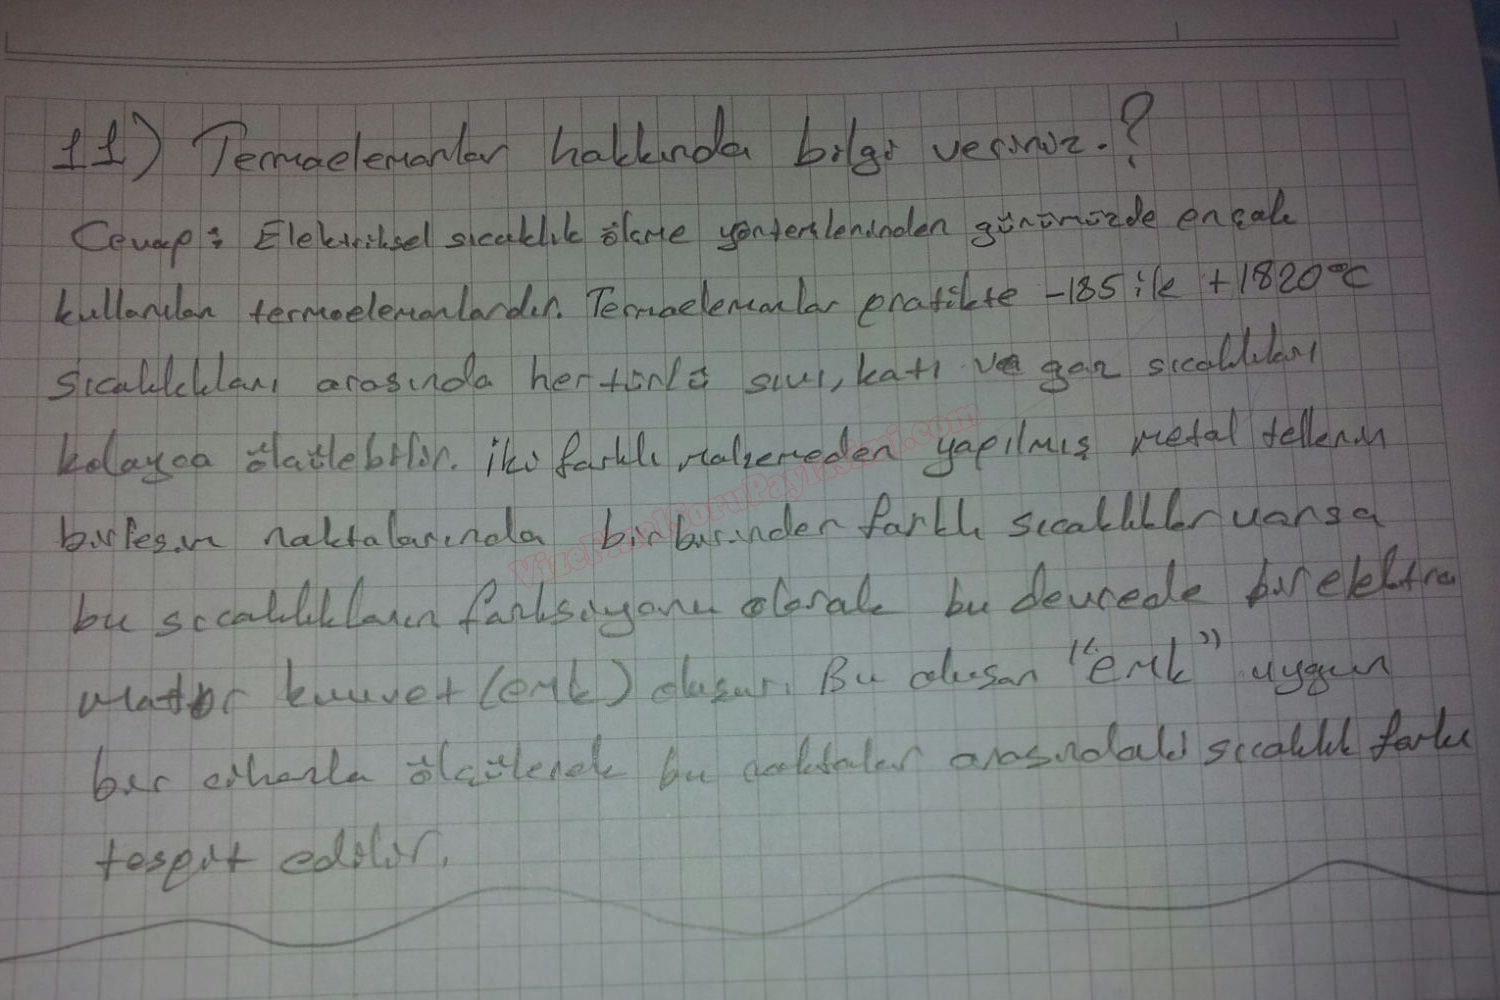 11) Termoelemanlar hakkında bilgi veriniz.?
Cevap: Elektriksel sıcaklık ölçme yöntemlerinden günümüzde en çok
kullanılan termoelemanlardır. Termoelemanlar pratikte -185 ile +1820°C
sıcaklıkları arasında her türlü sıvı, katı ve gaz sıcaklıkları
kolayca ölçülebilir. iki farklı malzemeden yapılmış metal tellerin
birleşim noktalarında birbirinden farklı sıcaklıklar varsa
bu sıcaklıkların fonksiyonu olarak bu devrede bir elektro
motor kuvvet (emk) oluşur. Bu oluşan "emk" uygun
bir cihazla ölçülerek bu noktalar arasındaki sıcaklık farkı
tespit edilir.
VizeFinalSoruPaylasimi.com